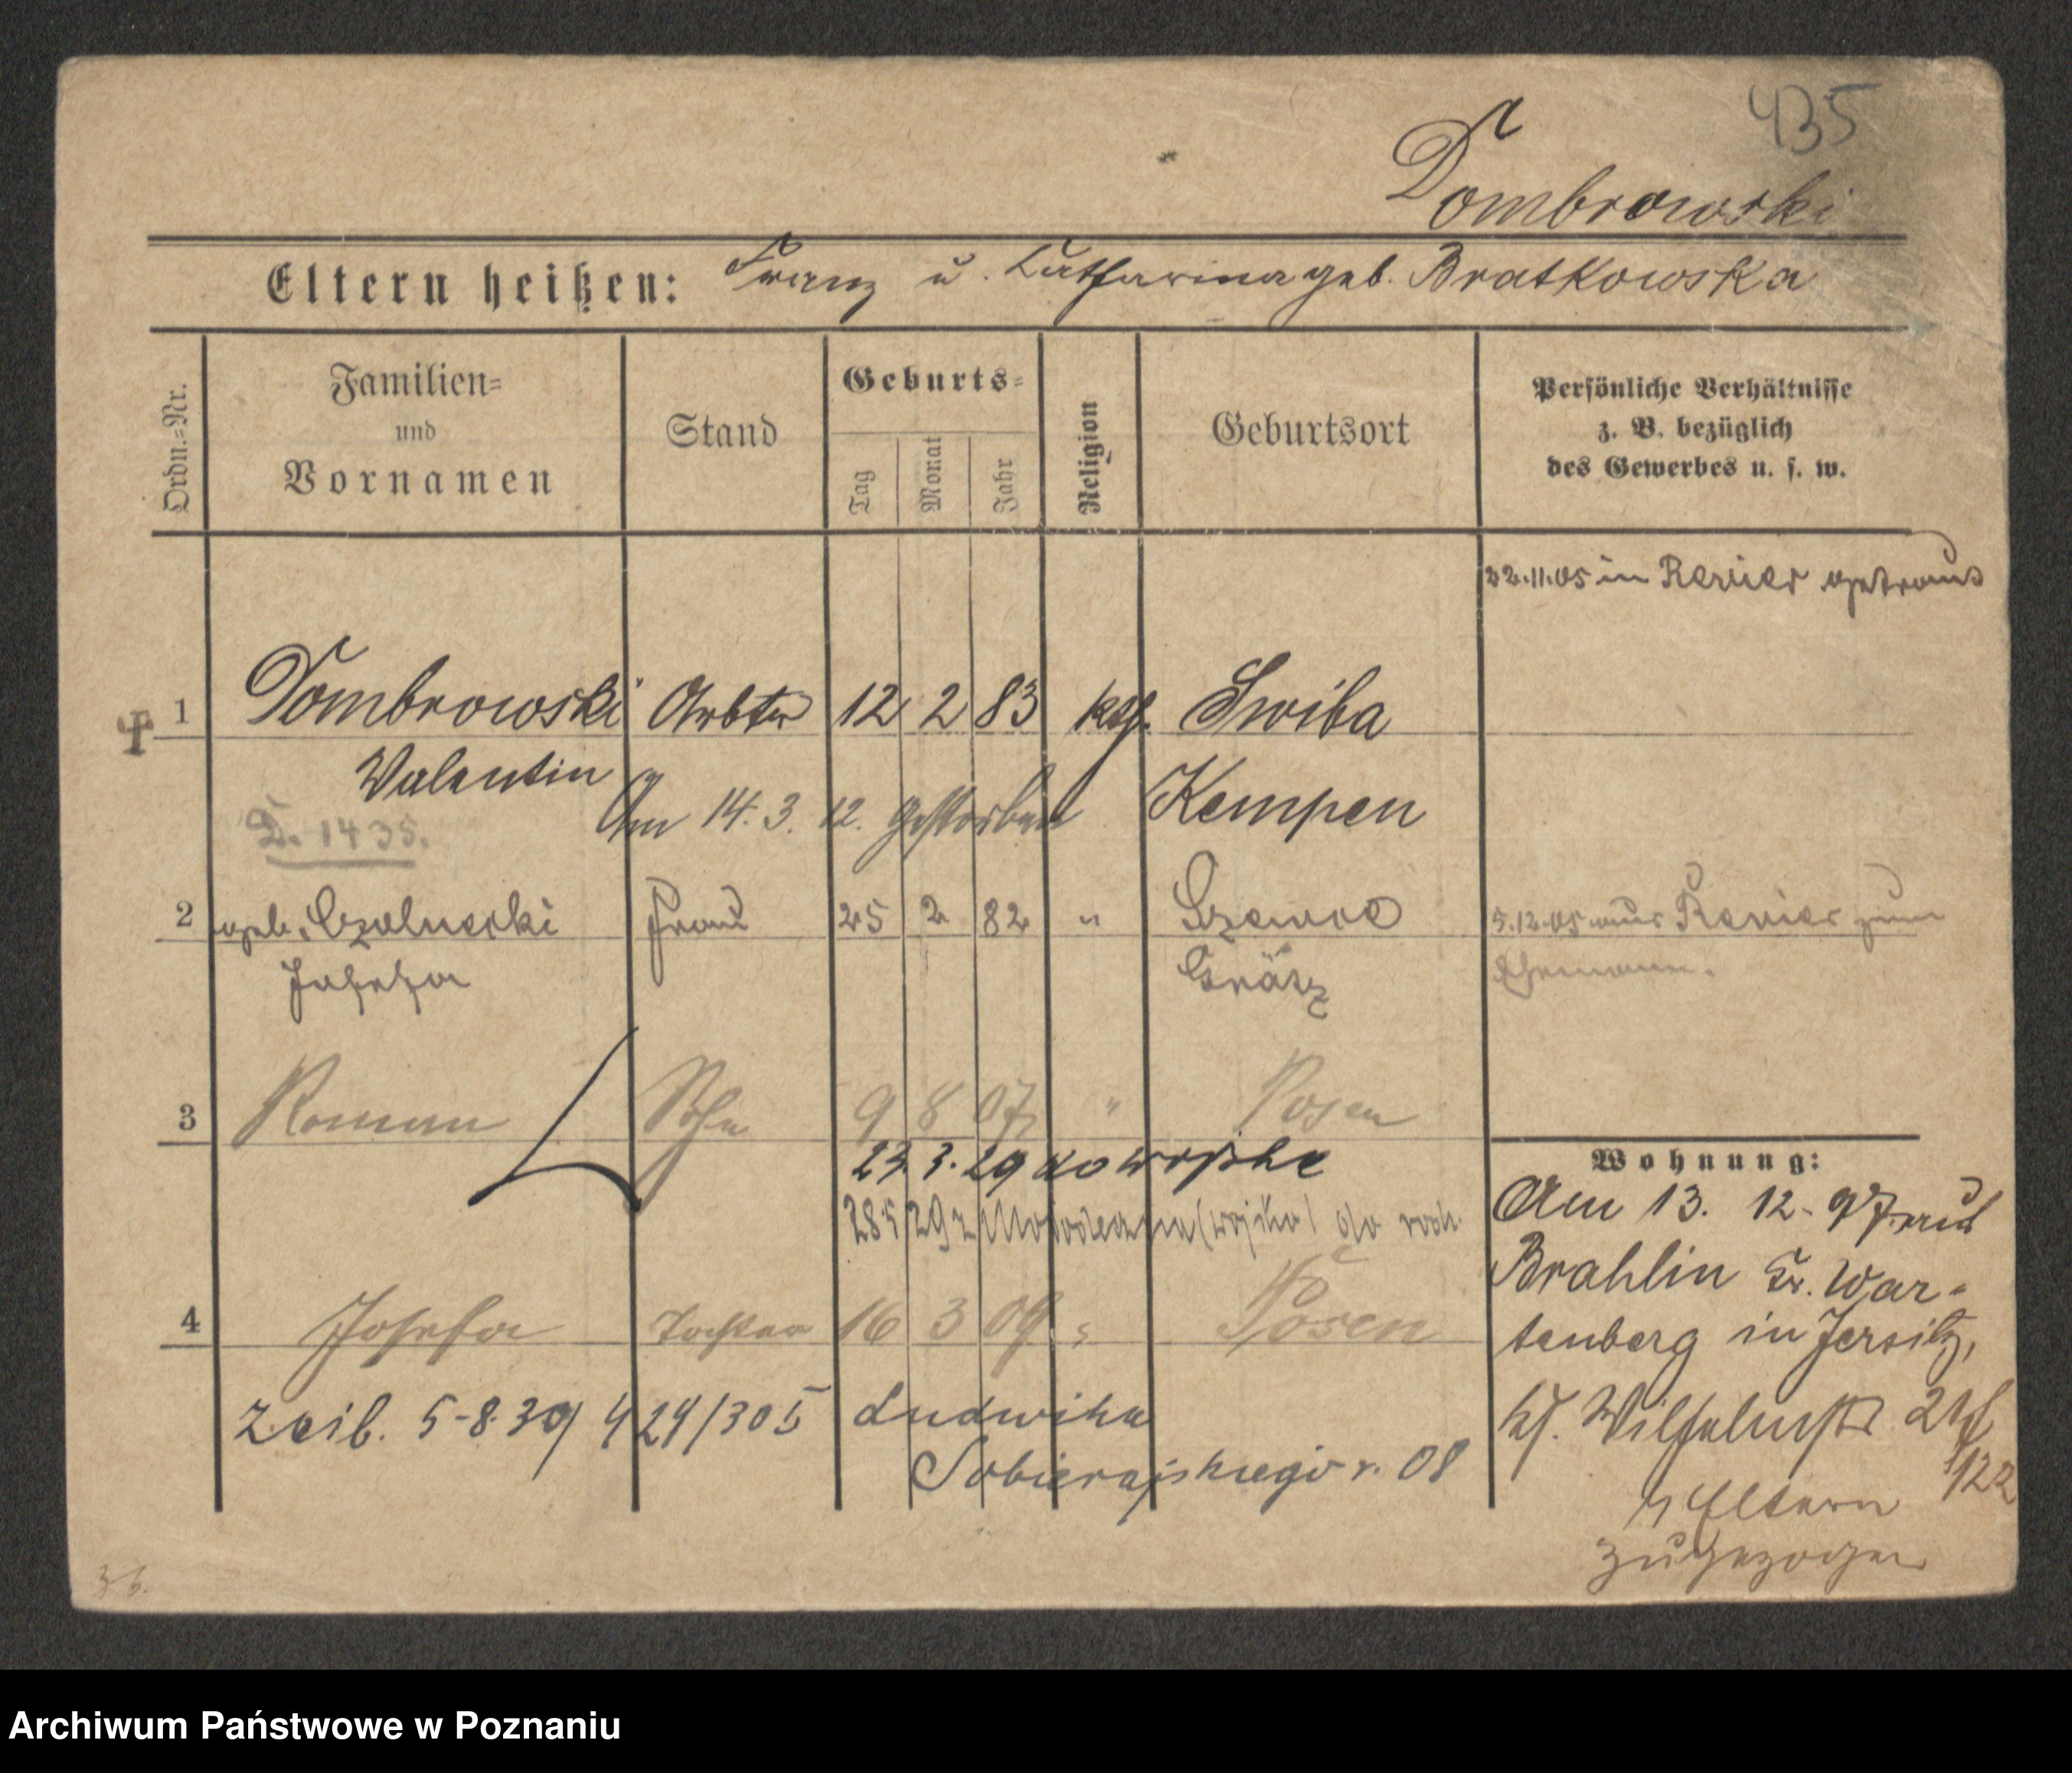 435
Dombrowski
Eltern heißen: Franz u. Catharina geb. Bratkowska
Ordn.=Nr.
Familien=
und
Vornamen
Stand
Geburts=
Tag
Monat
Jahr
Religion
Geburtsort
Persönliche Verhältnisse
z. B. bezüglich
des Gewerbes u. s. w.
22.11.05 in Revier getraut
1 Dombrowski Arbtr 12 2 83 kth. Swiba
Valentin
Am 14.3.12. gestorben
Kempen
D. 1435.
2 geb. Frau 25 2 82 "
Josefa
Grätz
5.12.05 aus Revier zum
Ehemann.
3 Roman Sohn 9 8 07 " Posen
23.3.29 do wojska
28.5 29 z (wojska) do rodz.
4 Josefa Tochter 16 3 09 Posen
Zeib. 5-8.30 / 424/305 Ludwika
Sobierajskiego r. 08
Wohnung:
Am 13. 12. 97 aus
Brahlin Kr. War-
tenberg in Jersitz,
Wilhelmstr
122
Eltern
zugezogen
Archiwum Państwowe w Poznaniu